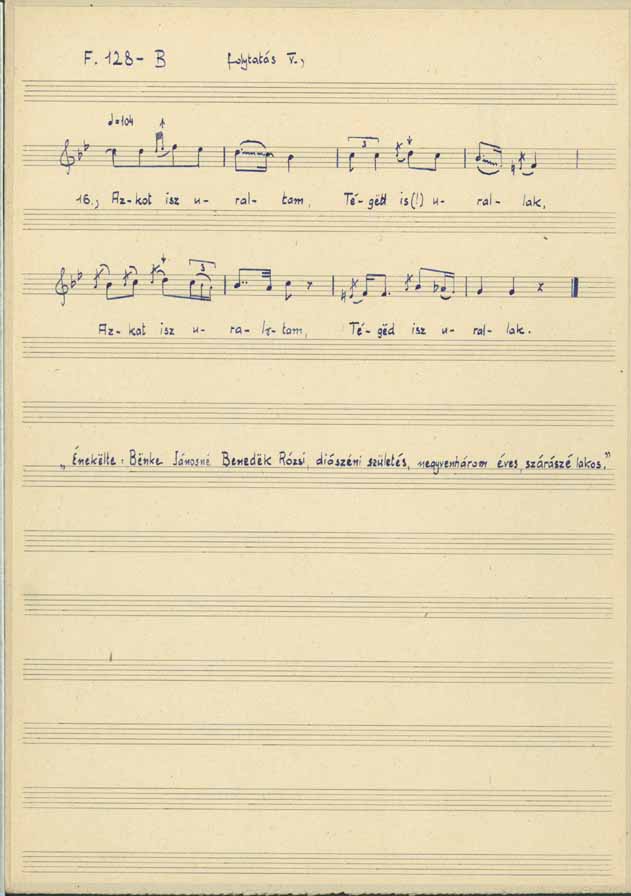 F. 128- B folytatás V.,
♩=104
3
16., Az-kot isz u- ral- tam, Té- gëd is(!) u- ral- lak,
3
Az- kat isz u- ra- tam, Té- gëd isz u- ral- lak.
„Énekëlte: Bënke Jánosné Benedëk Rózsi, diászéni születés, negyvenhárom éves, szárászé lakos.”